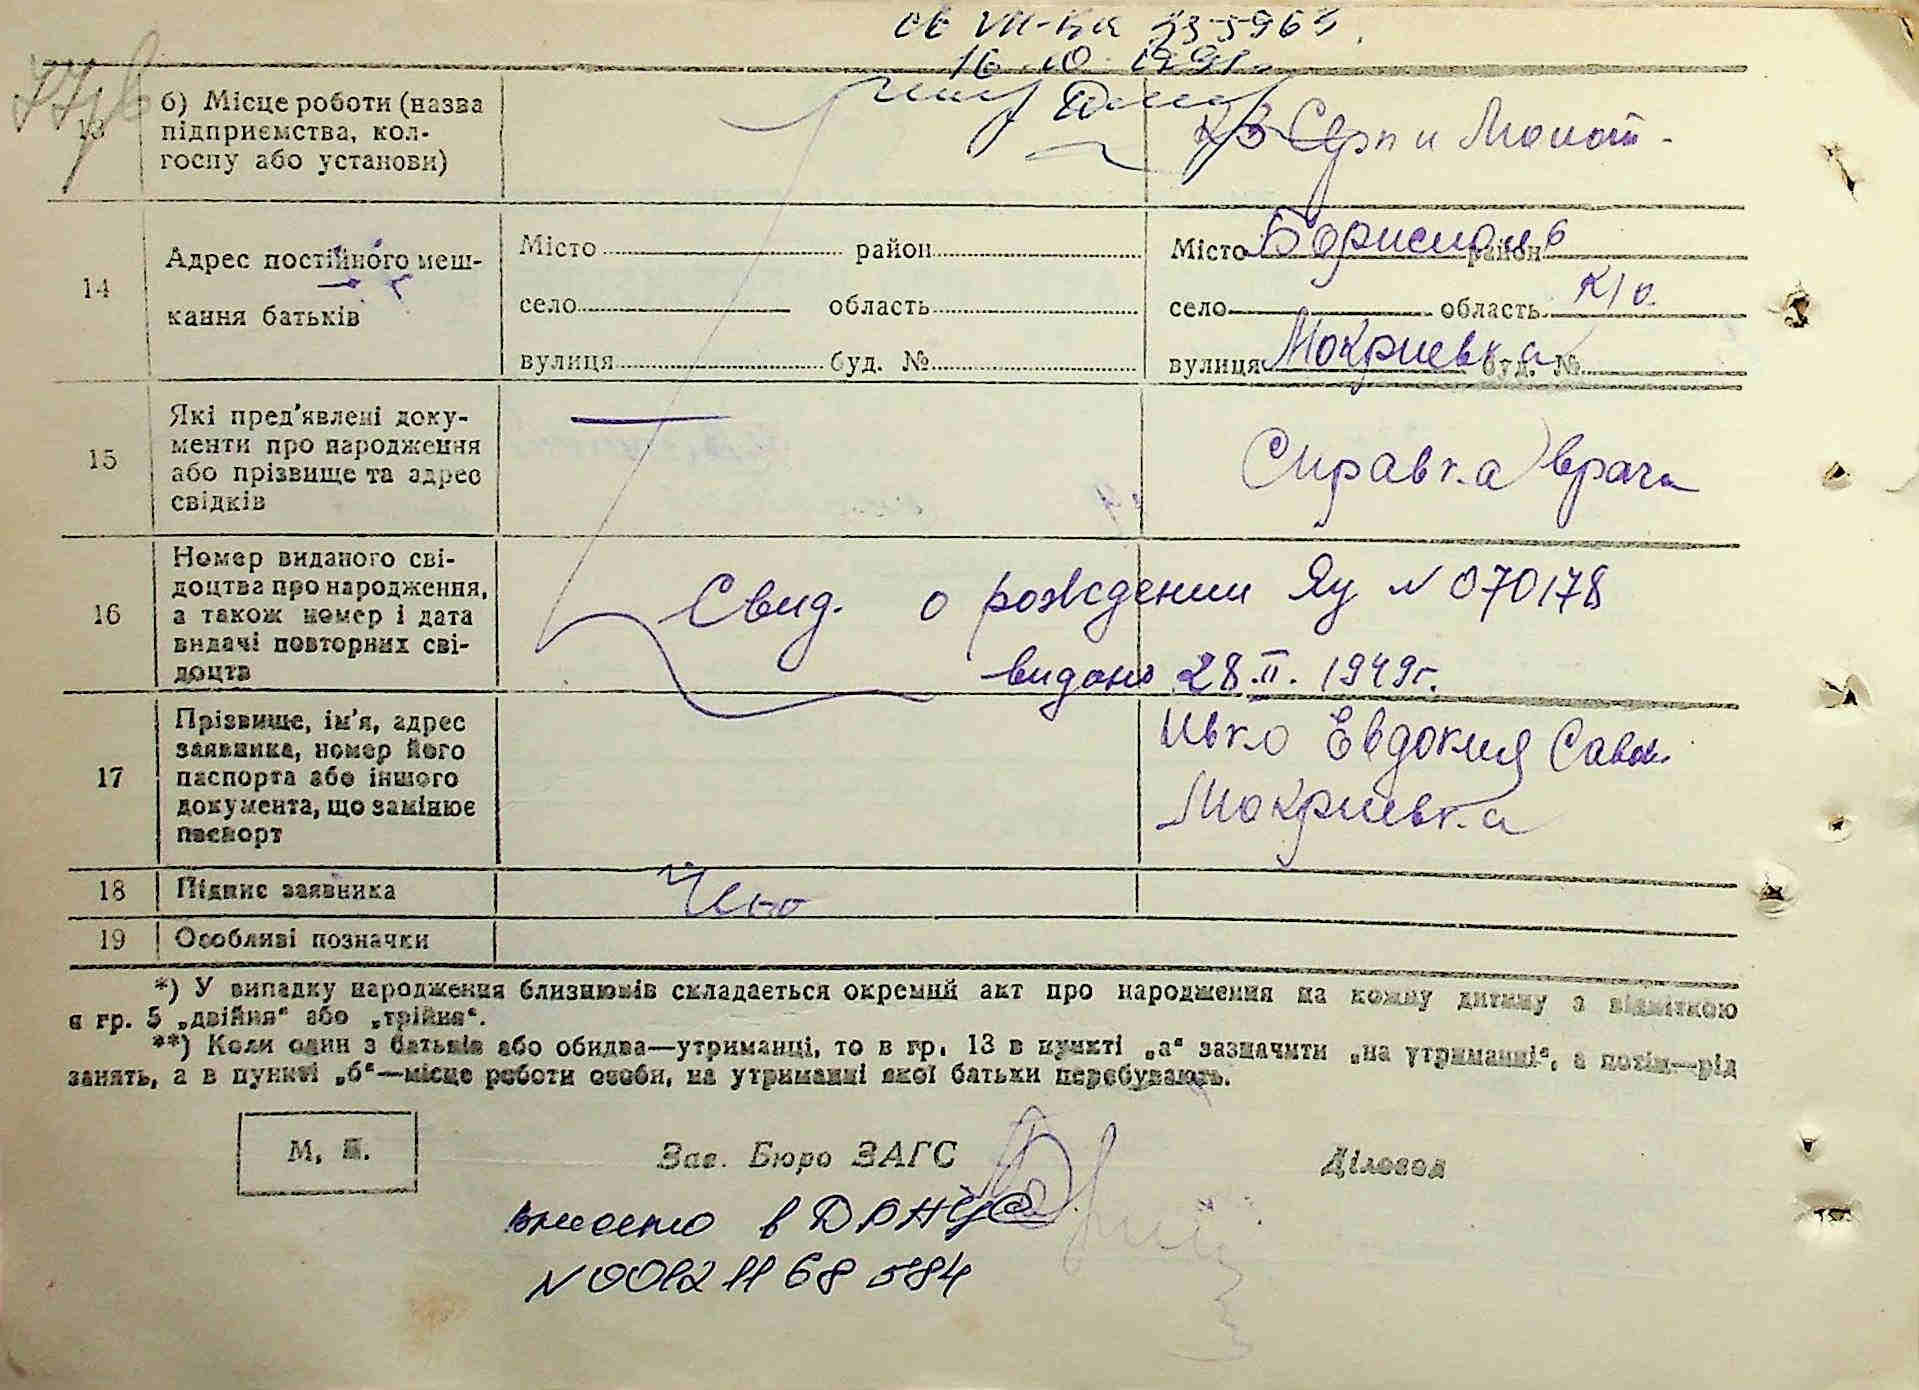 св VII-БК
16.10.1991г.
13
б) Місце роботи (назва
підприємства, кол-
госпу або установи)
Кз Серп и Молот
14
Адрес постійного меш-
кання батьків
Місто район
село область
вулиця буд. №
Місто Борисполь район
село область К/о.
вулиця Мокриевка буд. №
15
Які пред'явлені доку-
менти про народження
або прізвище та адрес
свідків
Справка врача
16
Номер виданого сві-
доцтва про народження,
а також номер і дата
видачі повторних сві-
доцтв
Свид. о рождении Яу № 070178
видано 28.II.1949г.
17
Прізвище, ім'я, адрес
заявника, номер його
паспорта або іншого
документа, що замінює
паспорт
Ивко Евдокия Савов.
Мокриевка
18
Підпис заявника
19
Особливі позначки
*) У випадку народження близнюків складається окремий акт про народження на кожну дитину з відміткою
в гр. 5 „двійня“ або „трійня“.
**) Коли один з батьків або обидва—утриманці, то в гр. 13 в пункті „а“ зазначити „на утриманні“, а потім—рід
занять, а в пункті „б“—місце роботи особи, на утриманні якої батьки перебувають.
М. П.
Зав. Бюро ЗАГС
Діловод
внесено в ДРАЦС
№ 00121168584